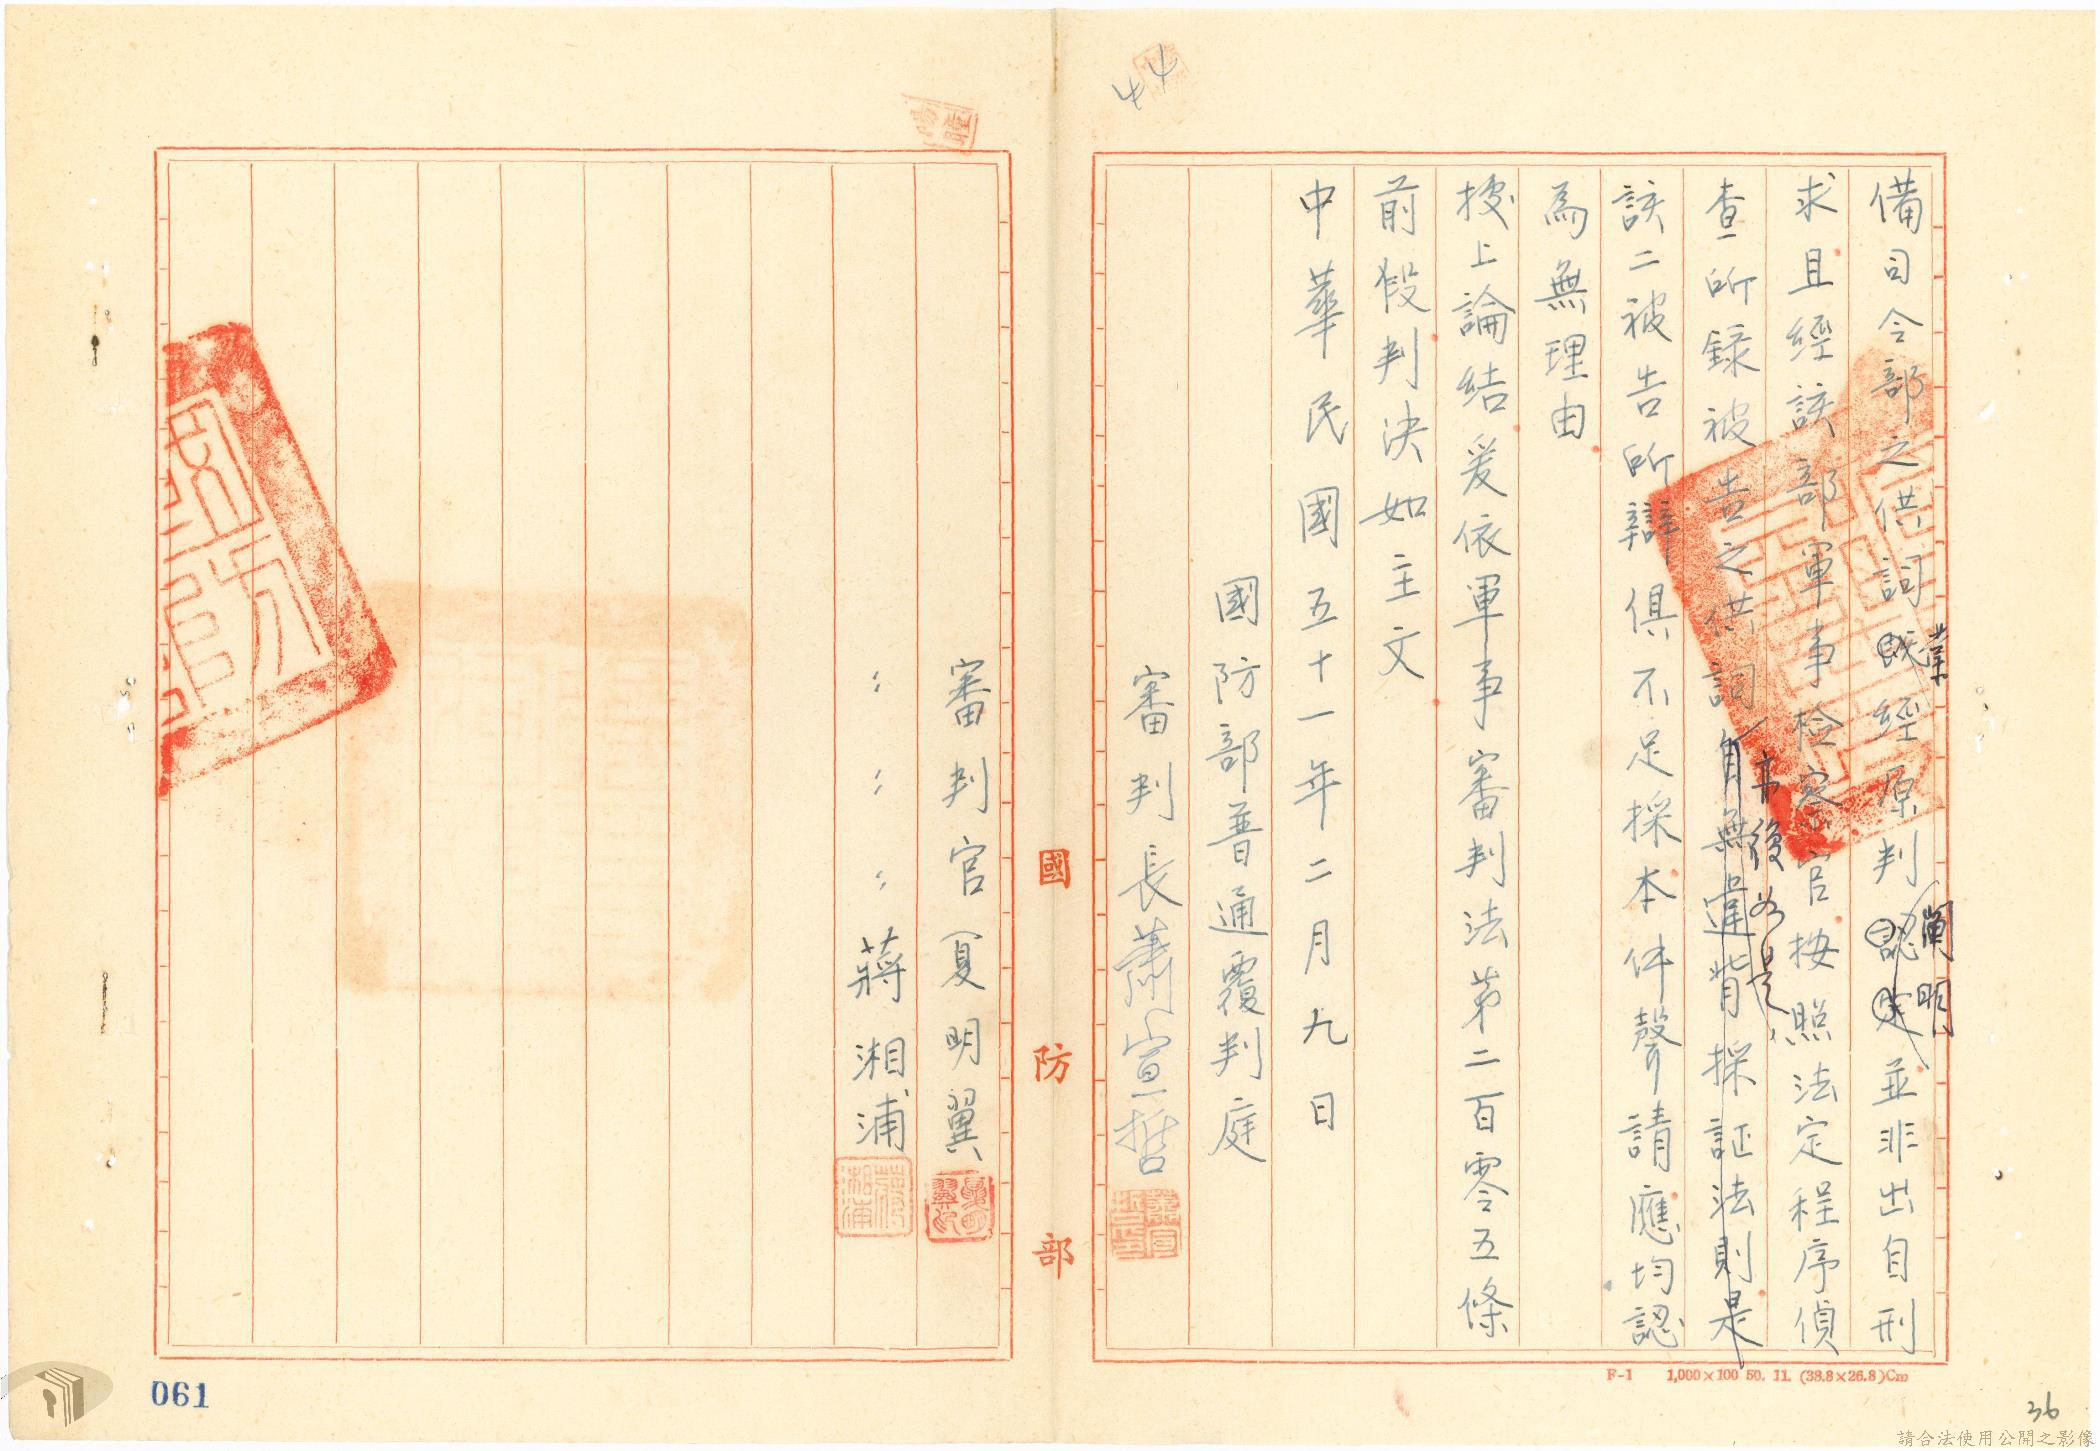 44
備司令部之供詞既業經原判認定闡明並非出自刑
求且經該部軍事檢察官按照法定程序偵
查所錄被告之供詞自無違背採証法則是
亦復如是,
該二被告所辯俱不足採本件聲請應均認
為無理由
據上論結爰依軍事審判法第二百零五條
前段判決如主文
中華民國五十一年二月九日
國防部普通覆判庭
審判長蕭宣哲
國防部
審判官夏明翼
〃〃〃蔣湘浦
夏明翼印
蔣湘浦
F-1 1,000×100 50. 11. (38.8×26.8)Cm
061
36
請合法使用公開之影像